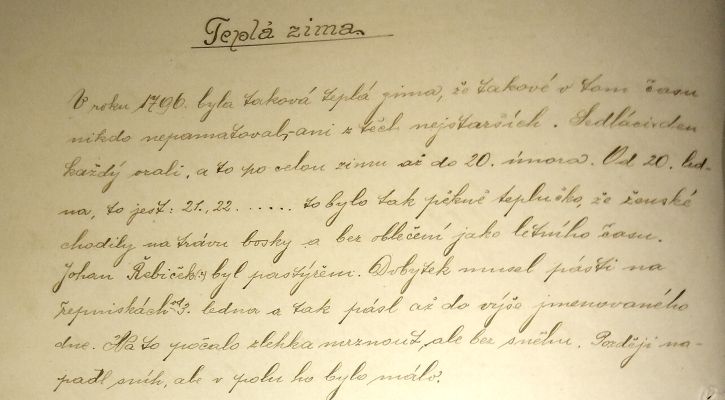 Teplá zima.
V roku 1796. byla taková teplá zima, že takové v tom času
nikdo nepamatoval, ani z těch nejstarších. Sedláci den
každý orali, a to po celou zimu až do 20. února. Od 20. led-
na, to jest: 21., 22. . . . . . to bylo tak pěkně teplučko, že ženské
chodily na trávu bosky a bez oblečení jako letního času.
Johan Řebíček(:) byl pastýřem. Dobytek musel pásti na
řepniskách od 3. ledna a tak pásl až do výše jmenovaného
dne. Na to počalo zlehka mrznout, ale bez sněhu. Později na-
padl sníh, ale v polu ho bylo málo.